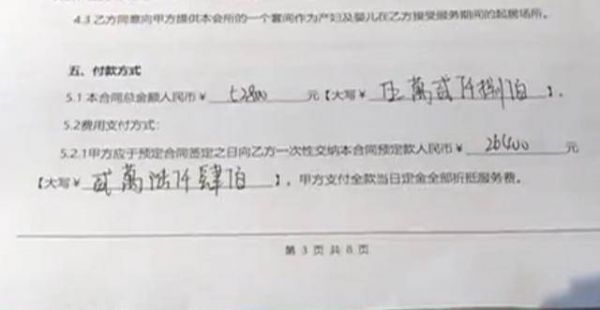 4.3 乙方同意向甲方提供本会所的一个套间作为产妇及婴儿在乙方接受服务期间的起居场所。
五、付款方式
5.1 本合同总金额人民币￥ 52800 元【大写￥ 伍萬贰仟捌佰 】。
5.2费用支付方式:
5.2.1甲方应于预定合同签定之日向乙方一次性交纳本合同预定款人民币￥ 26400 元
【大写￥ 贰萬陆仟肆佰 】，甲方支付全款当日定金全部折抵服务费。
第 3 页 共 8 页